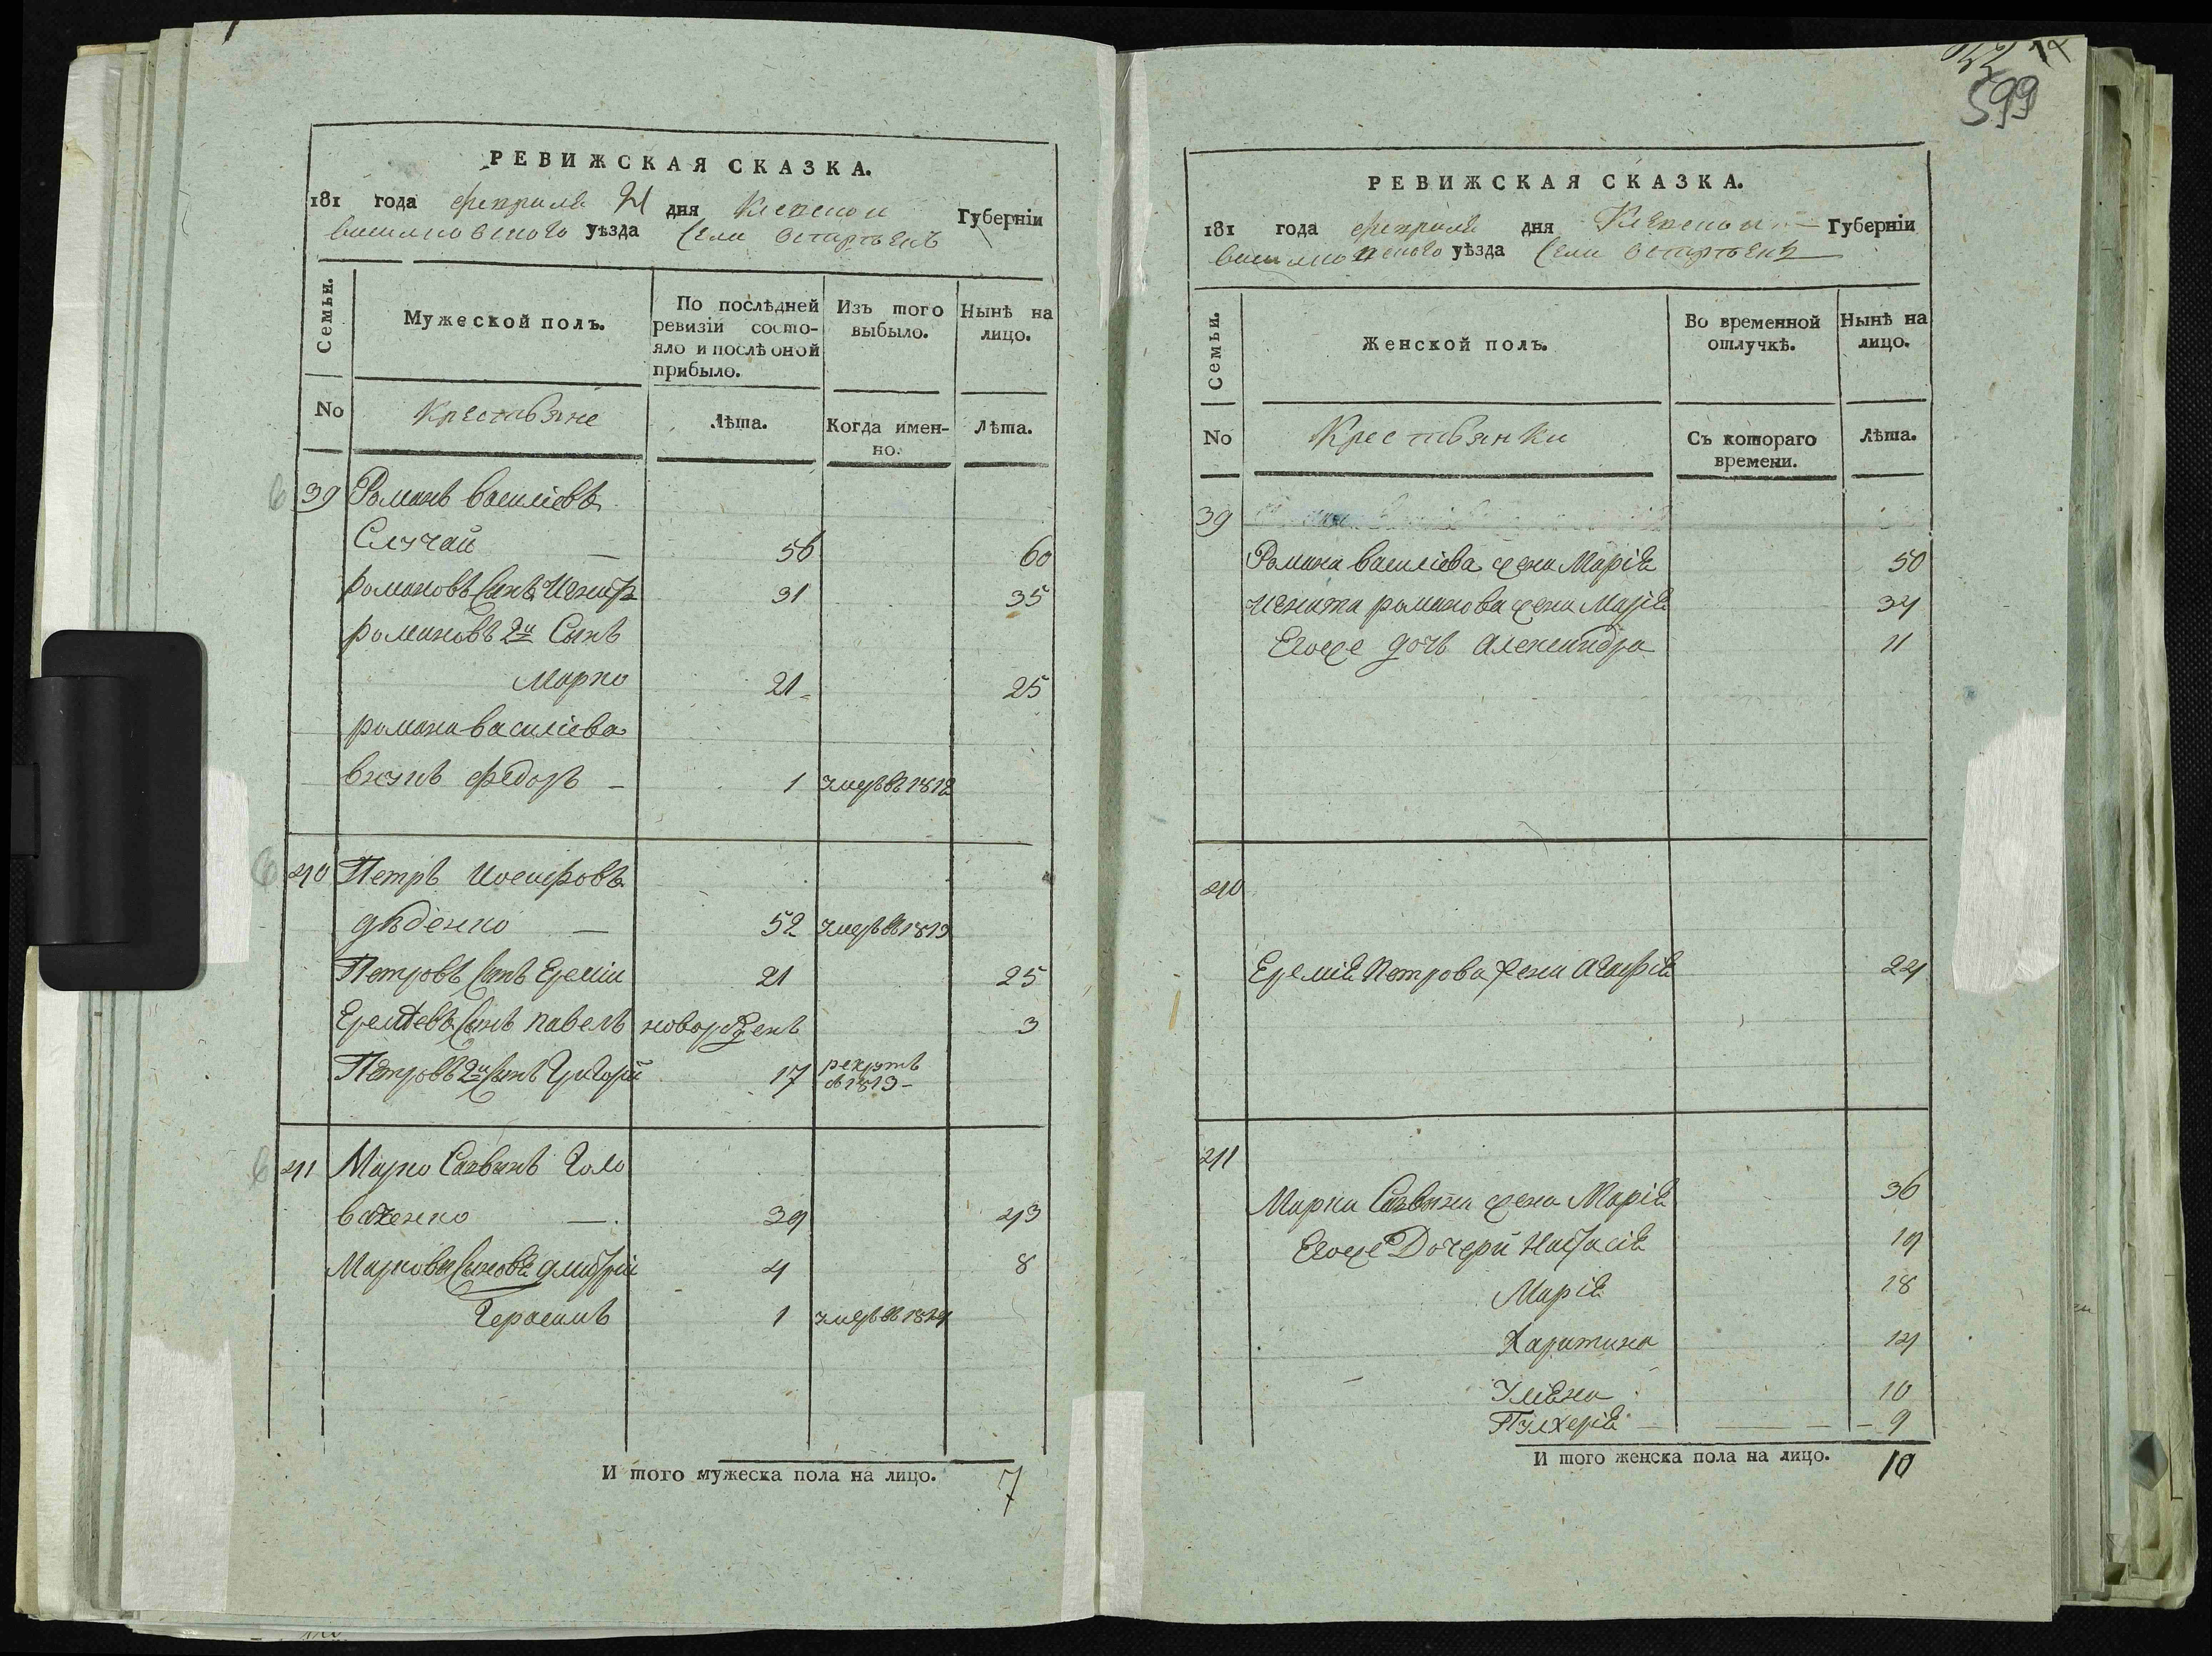 РЕВИЖСКАЯ СКАЗКА.
181 года февраля 21 дня Киевской Губерніи
василковского уѣзда Села
Семьи.
Мужеской полъ.
По послѣдней ревизіи состояло и послѣ оной прибыло.
Изъ того выбыло.
Нынѣ на лицо.
No
Крестьяне
Лѣта.
Когда именно.
Лѣта.
39 Романъ василіевъ
Случай — 56 60
романовъ Сынъ Игнатъ 31 35
романовъ 2й Сынъ
Марко 21 25
романа василіева
внукъ федоръ — 1 умеръ въ 1812
40 Петръ Иосифовъ
дѣденко — 52 умеръ въ 1813
Петровъ Сынъ Еремій 21 25
Еремѣевъ Сынъ павелъ новорожденъ 3
Петровъ 2й Сынъ Григорій 17 рекрутъ
въ 1813
41 Марко Саввинъ Голо
ваченко — 39 43
Марковы Сыновья дмитрій 4 8
Герасимъ 1 умеръ въ 1814
И того мужеска пола на лицо. 7
599
РЕВИЖСКАЯ СКАЗКА.
181 года февраля дня Киевской Губерніи
василковского уѣзда Села
Семьи.
Женской полъ.
Во временной отлучкѣ.
Нынѣ на лицо.
No
Крестьянки
Съ котораго времени.
Лѣта.
39
Романа василіева жена Марія 50
Игната романова жена Марія 34
Егоже дочь Александра 11
40
Еремія Петрова жена Агафія 24
41
Марка Саввина жена Марія 36
Егоже Дочери Настасія 19
Марія 18
Харитина 14
Уляна 10
Пулхерія — 9
И того женска пола на лицо. 10